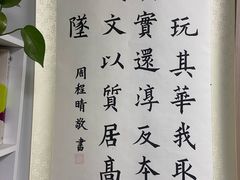 玩其華我取
實還淳反本
文以質居高
墜
周程晴敬書